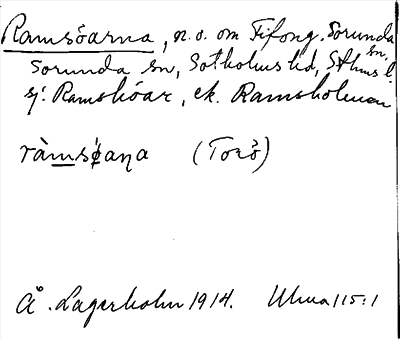 Ramsöarna, n.o. om Fifong. Sorunda sn,
Sorunda sn, Sotholms hd, Sthms l.
sj. Ramsköar, ek. Ramsholmen
ràmsøaṇa (Torö)
Å. Lagerholm 1914. Uhua 115:1